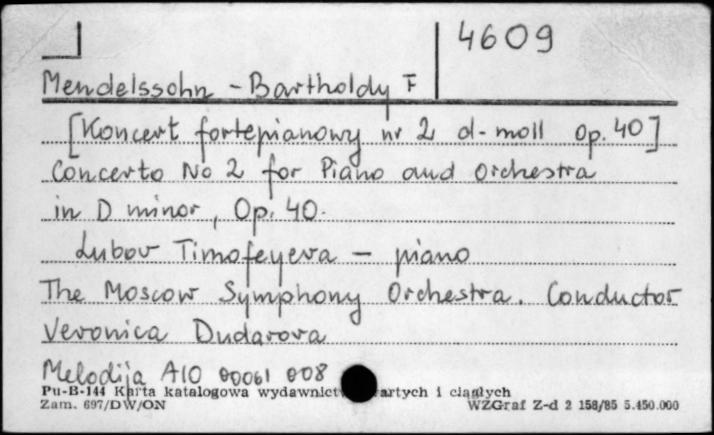 4609
Mendelssohn - Bartholdy F
[Koncert fortepianowy nr 2 d-moll Op. 40]
Concerto No 2 for Piano and Orchestra
in D minor, Op. 40.
Lubov Timofeyeva - piano
The Moscow Symphony Orchestra. Conductor
Veronica Dudarova
Melodija A10 00061 008
Pu-B-144 Karta katalogowa wydawnict artych i ciągłych
Zam. 697/DW/ON WZGraf Z-d 2 158/85 5.450.000